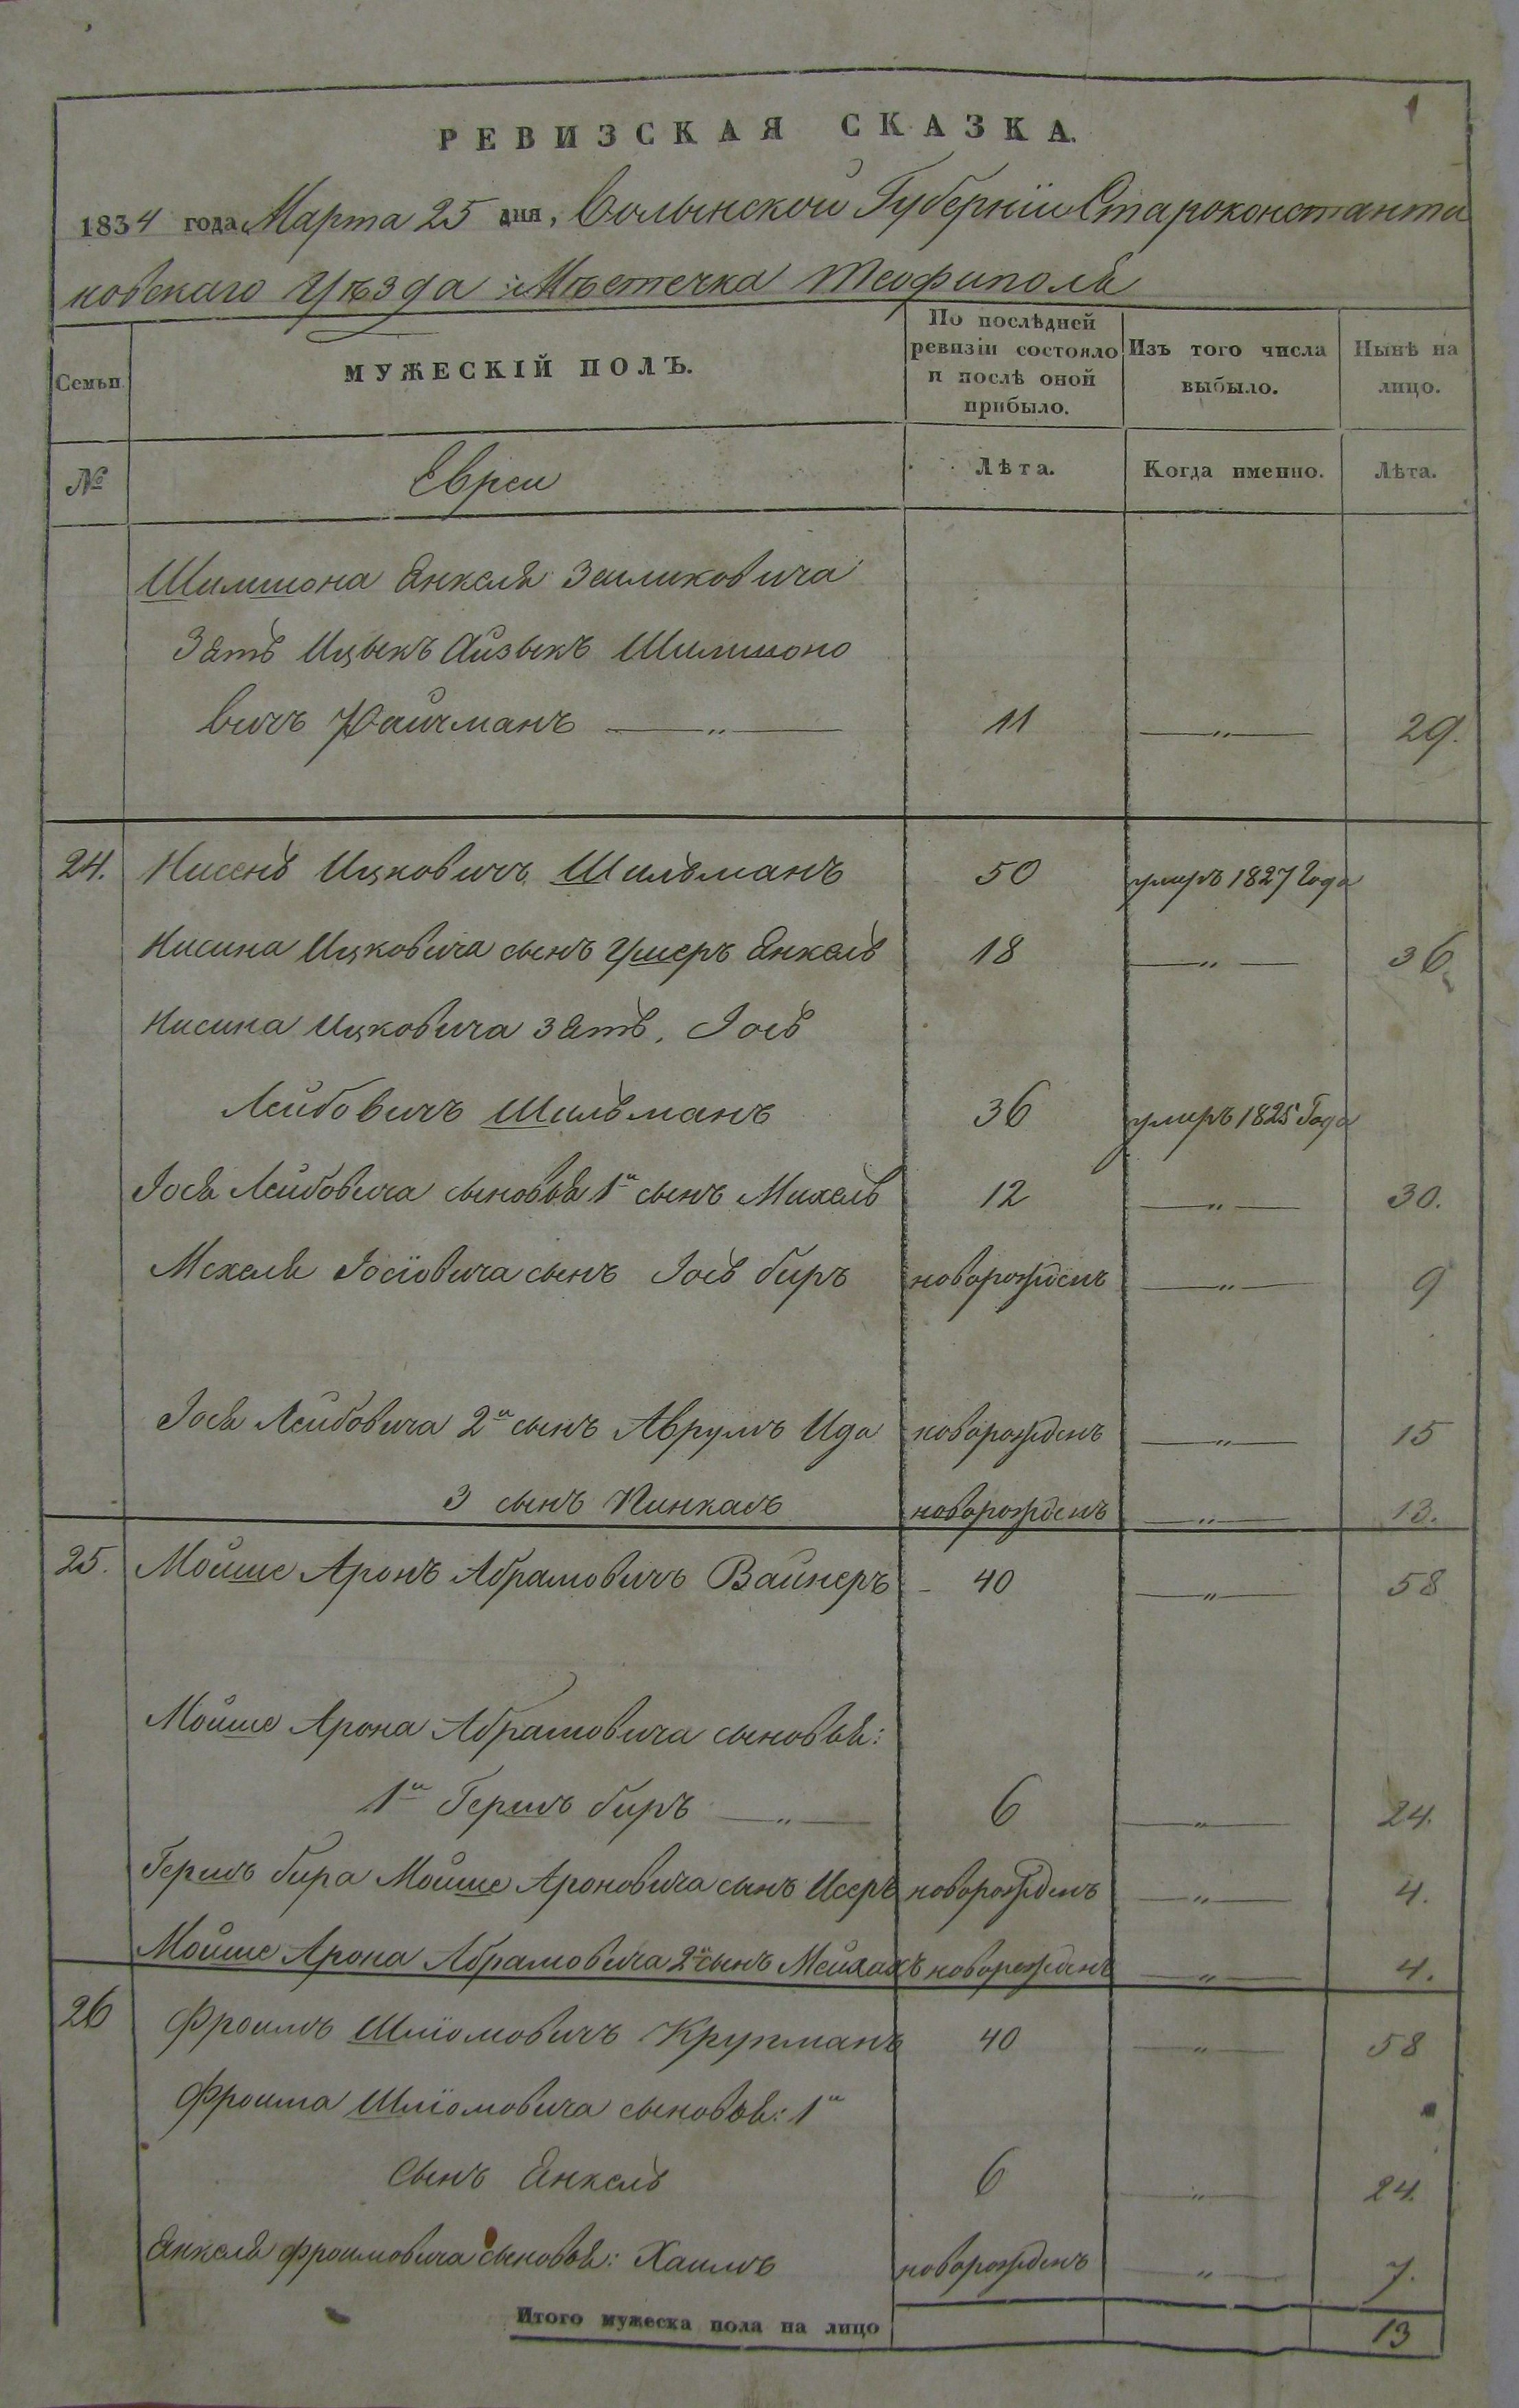 1
РЕВИЗСКАЯ СКАЗКА.
1834 года Марта 25 дня, Волынской Губерніи Староконстанти
новскаго Уѣзда Мѣстечка Теофиполя
Семьи
МУЖЕСКІЙ ПОЛЪ.
По послѣдней ревизіи состояло и послѣ оной прибыло.
Изъ того числа выбыло.
Нынѣ на лицо.
№ Евреи Лѣта. Когда именно. Лѣта.
Шимшона Янкеля Зеиликовича
Зять Ицыкъ Айзыкъ Шимшоно
вичъ —„— 11 —„— 29.
24. Нисенъ Ицковичъ Шильманъ 50 умеръ 1827 Года
Нисина Ицковича сынъ Ушеръ Янкель 18 —„— 36
Нисина Ицковича зять, Іось
Лейбовичъ Шильманъ 36 умеръ 1825 Года
Іося Лейбовича сыновья 1й сынъ Михель 12 —„— 30.
Мехеля Іосіовича сынъ Іось биръ новорожденъ —„— 9
Іося Лейбовича 2й сынъ Аврумъ Ида новорожденъ —„— 15
3 сынъ Пинкасъ новорожденъ —„— 13.
25. Мойше Аронъ Абрамовичъ Вайнеръ - 40 —„— 58
Мойше Арона Абрамовича сыновья:
1й Гершъ биръ —„— 6 —„— 24.
Гершъ бира Мойше Ароновича сынъ Исеръ новорожденъ —„— 4.
Мойше Арона Абрамовича 2й сынъ Мейлахъ новорожденъ —„— 4.
26 Фроимъ Шліомовичъ Крупманъ 40 —„— 58
Фроима Шліомовича сыновья: 1й
сынъ Янкель 6 —„— 24.
Янкеля Фроимовича сыновья: Хаимъ новорожденъ —„— 7.
Итого мужеска пола на лицо 13